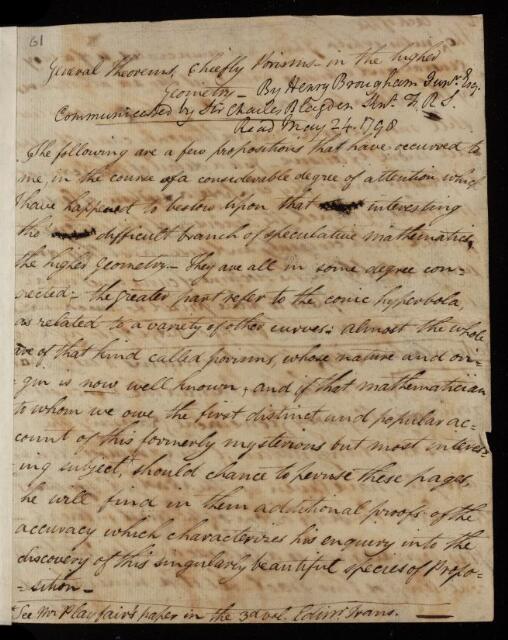 61
General Theorems, chiefly Porisms in the higher
Geometry - By Henry Brougham Junr. Esq.
Communicated by Sir Charles Blagden Knt. F.R.S.
Read May 24. 1798
The following are a few propositions that have occurred to
me, in the course of a considerable degree of attention which
I have happened to bestow upon that interesting
tho difficult branch of speculative mathematics,
the higher Geometry. - They are all in some degree con-
nected - the greater part refer to the conic hyperbola
as related to a variety of other curves: almost the whole
are of that kind called porisms, whose nature and ori-
-gin is now well known, and if that mathematician
to whom we owe the first distinct and popular ac-
count of this formerly mysterious but most interest-
-ing subject* should chance to peruse these pages,
he will find in them additional proofs of the
accuracy which characterizes his enquiry into the
discovery of this singularly beautiful species of Propo-
-sition -
* See Mr. Playfair's paper in the 3d vol. Edinr. Trans.